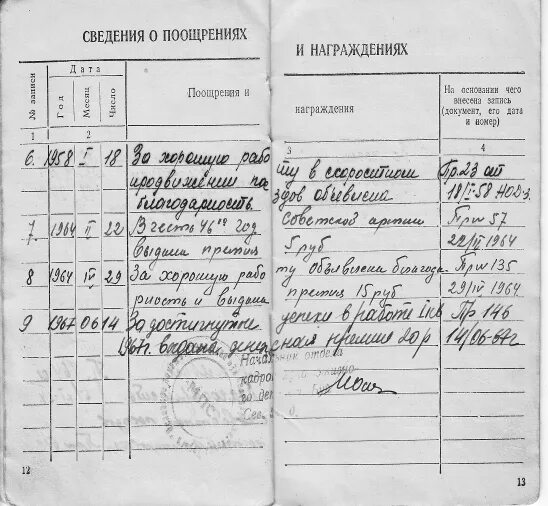 СВЕДЕНИЯ О ПООЩРЕНИЯХ И НАГРАЖДЕНИЯХ
№ записи
Дата
Год
Месяц
Число
Поощрения и награждения
На основании чего внесена запись (документ, его дата и номер)
1 2 3 4
6. 1958 I 18 За хорошую работу в скоростном Пр. 23 от
продвижении поездов объявлена 18/I-58 НОД-3.
благодарность
7 1964 II 22 В честь 46ой год Советской армии Пр № 57
выдана премия 5 руб 22/II 1964
8 1964 IV 29 За хорошую работу объявлена благода Пр № 135
рность и выдана премия 15 руб 29/IV 1964
9 1967 06 14 За достигнутые успехи в работе Iкв Пр 146
1967г. выдана денежная премия 20р 14/06-67г
Начальник отдела
кадров
МПС
12
13